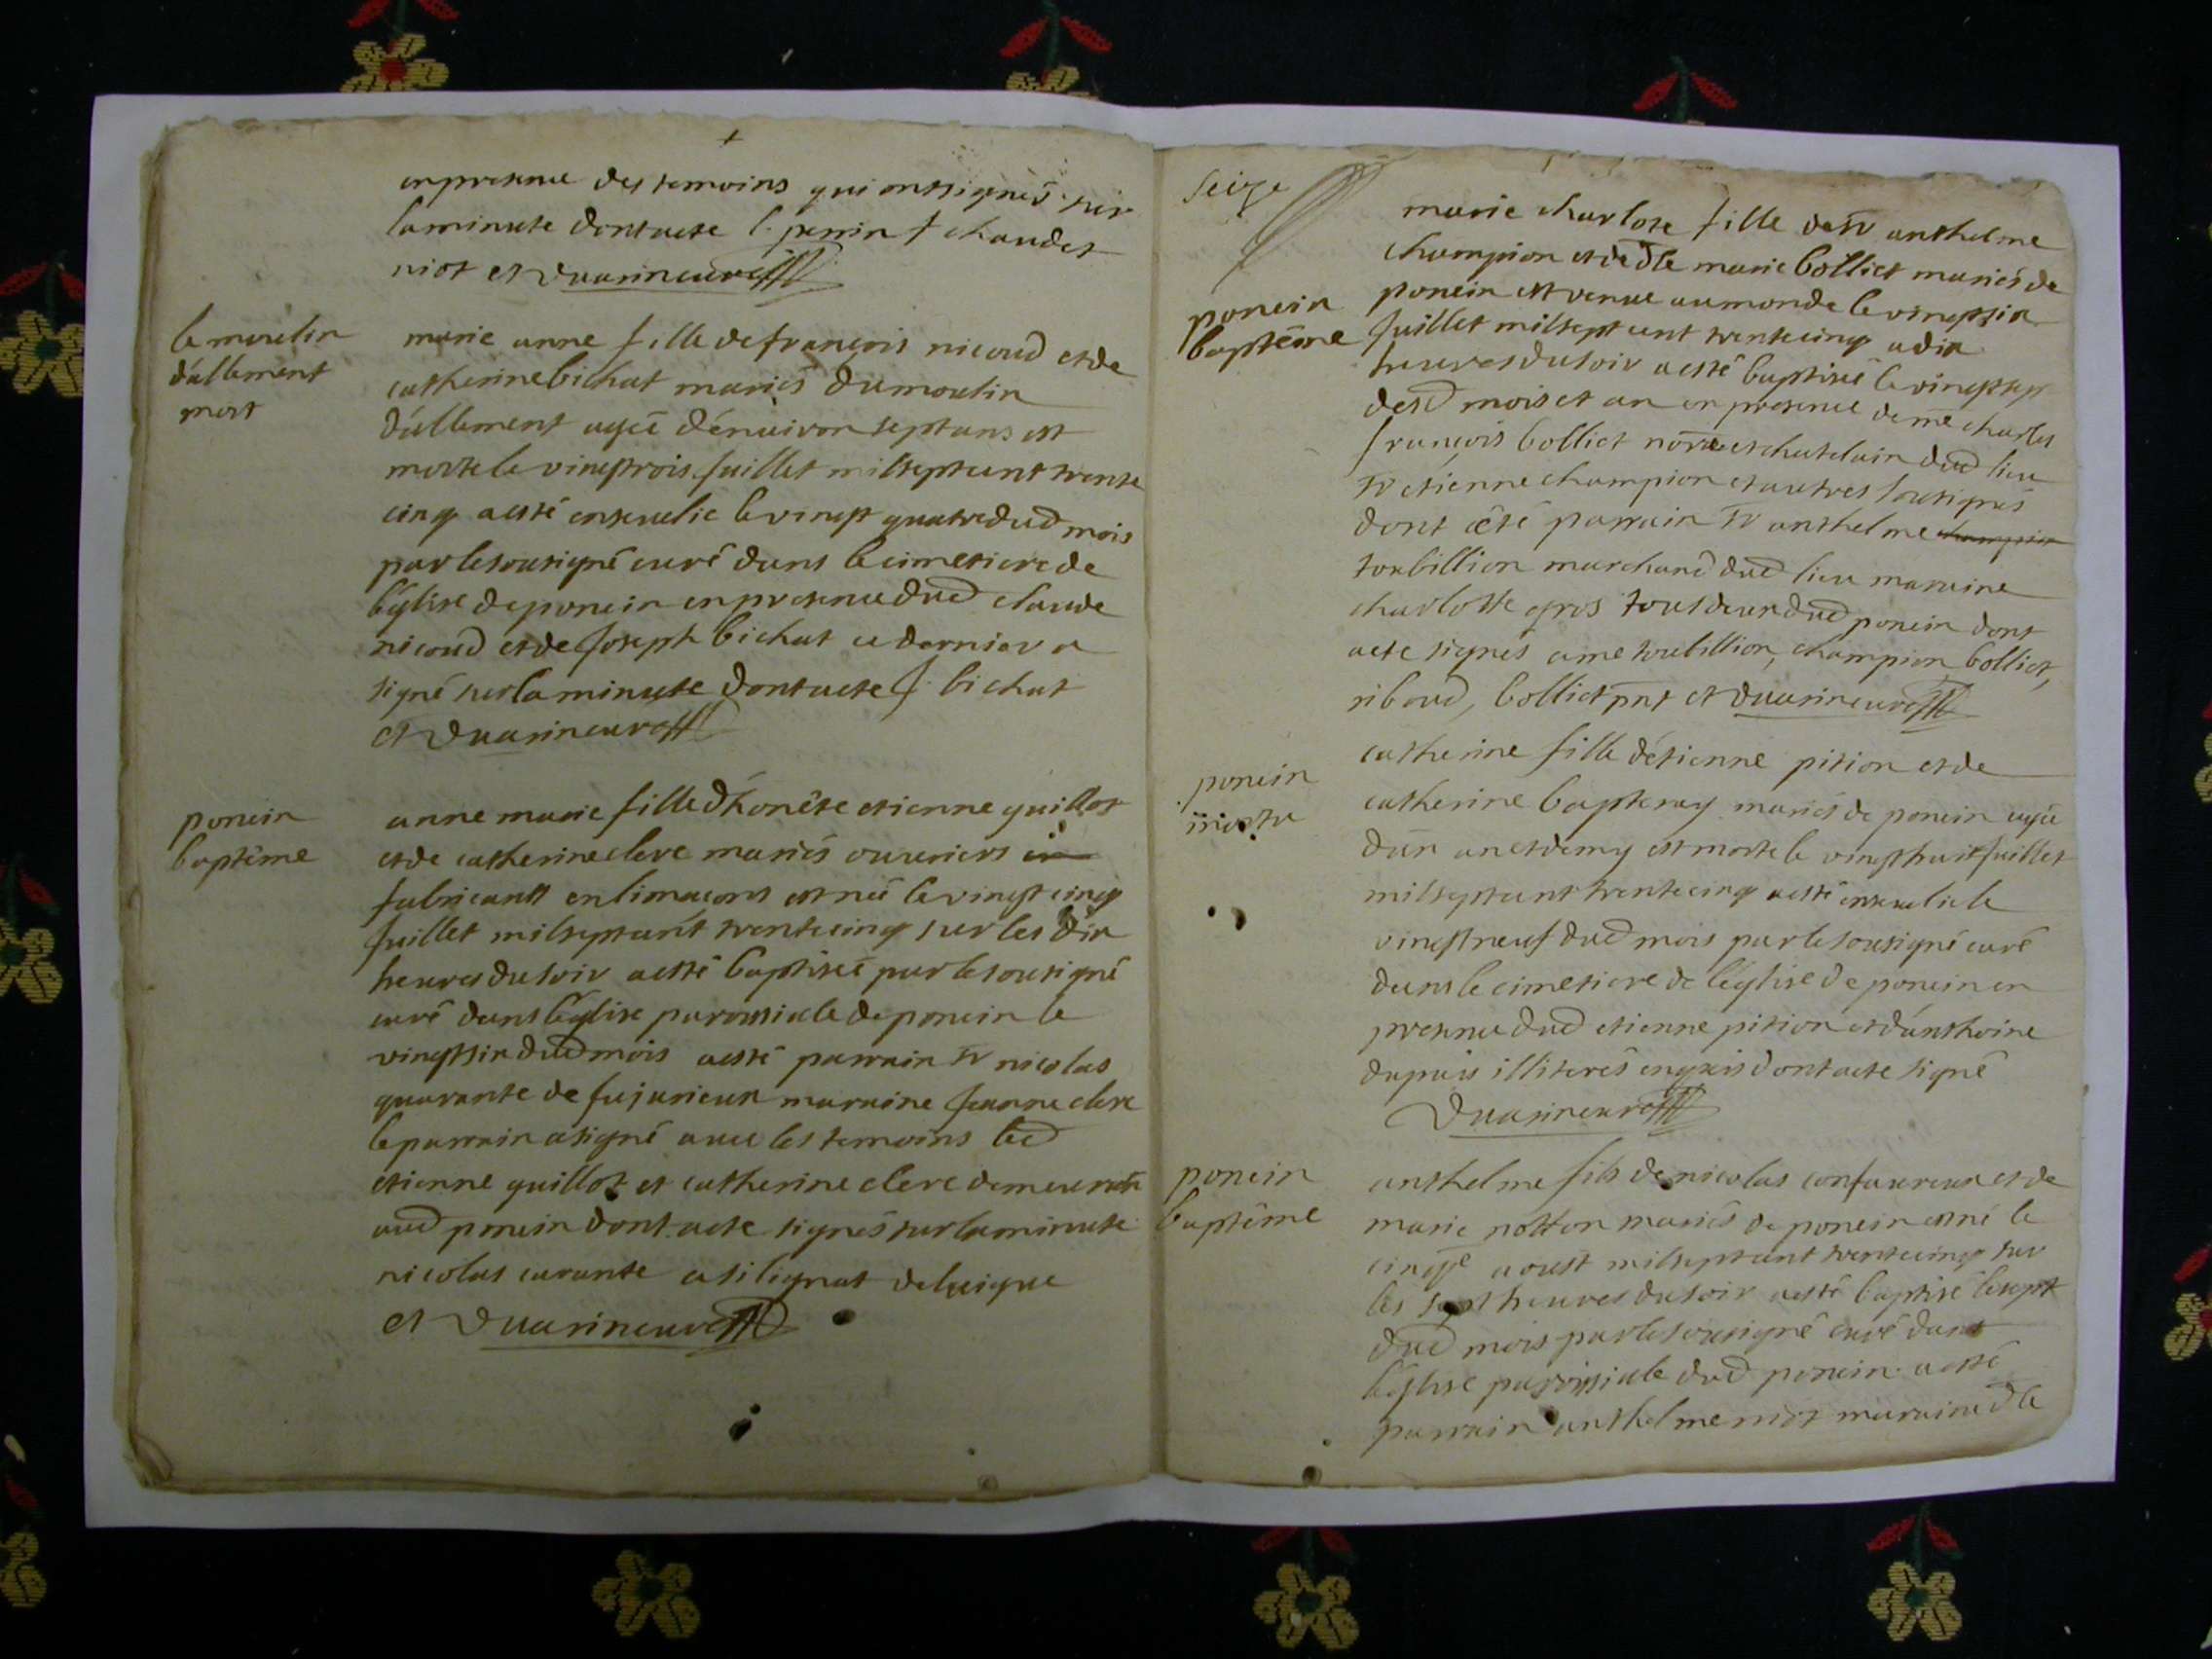 en presence des temoins qui ont signés sur
la minute dont acte l. perrin f chaudet
niot et Duarin curé
le moulin
d'allement
mort
marie anne fille de francois nicoud et de
catherine bichat mariés du moulin
d'allement agée d'énuiron sept ans est
morte le vingtrois juillet mil sept cent trente
cinq a esté enseuelie le vingt quatre dud mois
par le sousigné curé dans le cimetiere de
l'église de poncin en presence dud claude
nicoud et de joseph bichat ce dernier a
signé sur la minute dont acte J. bichat
et Duarin curé
poncin
baptême
anne marie fille d'honête etienne guillot
et de catherine clerc mariés ouuriers
fabricants en limaçons est née le vingt cinq
juillet mil sept cent trente cinq sur les dix
heures du soir a esté baptisée par le sousigné
curé dans l'église paroissiale de poncin le
vingt six dud mois a esté parrain sr nicolas
quarante de jujurieux maraine jeanne clerc
le parrain a signé auec les temoins led
etienne guillot et catherine clerc demeurants
aud poncin dont acte signés sur la minute
nicolas carante
et Duarin curé
seize
poncin
baptême
marie charlote fille de sr anthelme
champion et de dlle marie bolliet mariés de
poncin est venue au monde le vingt six
juillet mil sept cent trente cinq a dix
heures du soir a esté baptisée le vingt sep
desd mois et an en presence de me charles
françois bolliet nore et chatelain dud lieu
sr etienne champion et autres sousignés
dont a été parrain sr anthelme champion
toubillion marchand dud lieu maraine
charlotte gros tous deux dud poncin dont
acte signés a me toubillion, champion bolliet,
riboud, bolliet pnt et Duarin curé
poncin
morte
catherine fille d'étienne pition et de
catherine baptemy mariés de poncin agée
d'un an et demy est morte le vingt huit juillet
mil sept cent trente cinq a esté enseuelie le
vingt neuf dud mois par le sousigné curé
dans le cimetiere de l'église de poncin en
presence dud etienne pition et d'anthoine
dupuis illiterés enquis dont acte signé
Duarin curé
poncin
baptême
anthelme fils de nicolas confaureux et de
marie notton mariés de poncin est né le
cinqe aoust mil sept cent trente cinq sur
les sept heures du soir a esté baptisé le sept
dud mois par le sousigné curé dans
l'église paroissiale dud poncin a esté
parrain anthelme niot maraine dlle